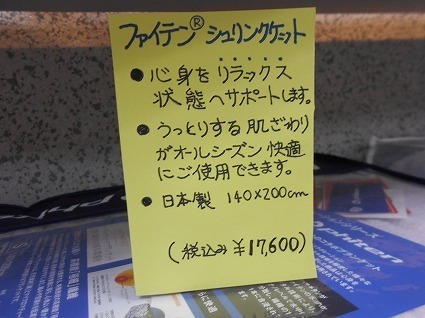 ファイテン® シュリンクケット
● 心身をリラックス
状態へサポートします。
● うっとりする肌ざわり
がオールシーズン快適
にご使用できます。
● 日本製 140×200cm
(税込み ¥17,600)
phiten